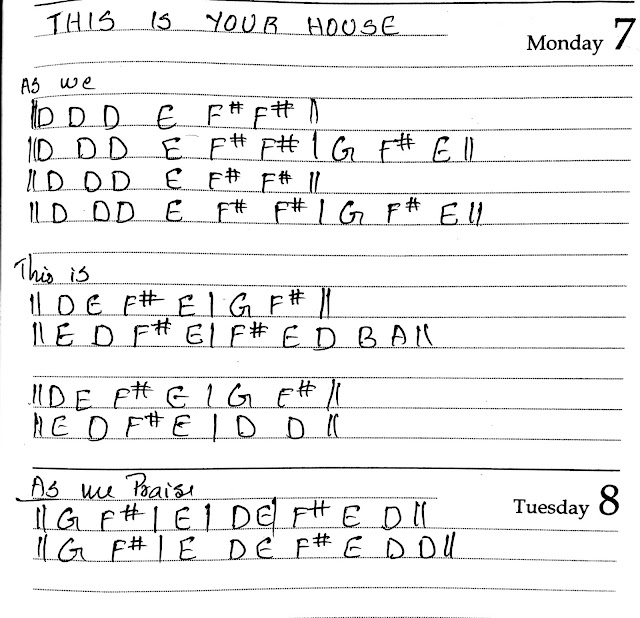 THIS IS YOUR HOUSE
Monday 7
As we
||D D D E F# F# ||
||D D D E F# F# | G F# E ||
||D D D E F# F# ||
||D D D E F# F# | G F# E ||
This is
|| D E F# E | G F# ||
|| E D F# E | F# E D B A ||
||D E F# E | G F# ||
||E D F# E | D D ||
As we Praise
Tuesday 8
|| G F# | E | DE| F# E D ||
|| G F# | E DE F# E D D ||